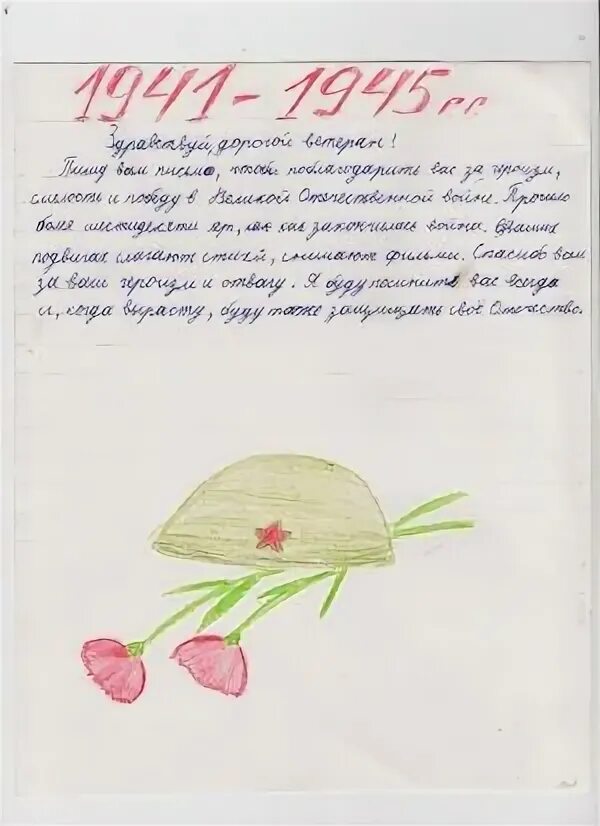 1941-1945гг
Здравствуй, дорогой ветеран!
Пишу вам письмо, чтобы поблагодарить вас за героизм,
смелость и победу в Великой Отечественной войне. Прошло
более шестидесяти лет, как закончилась война. О ваших
подвигах слагают стихи, снимают фильмы. Спасибо вам
за ваш героизм и отвагу. Я буду помнить вас всегда
и, когда вырасту, буду тоже защищать своё Отечество.